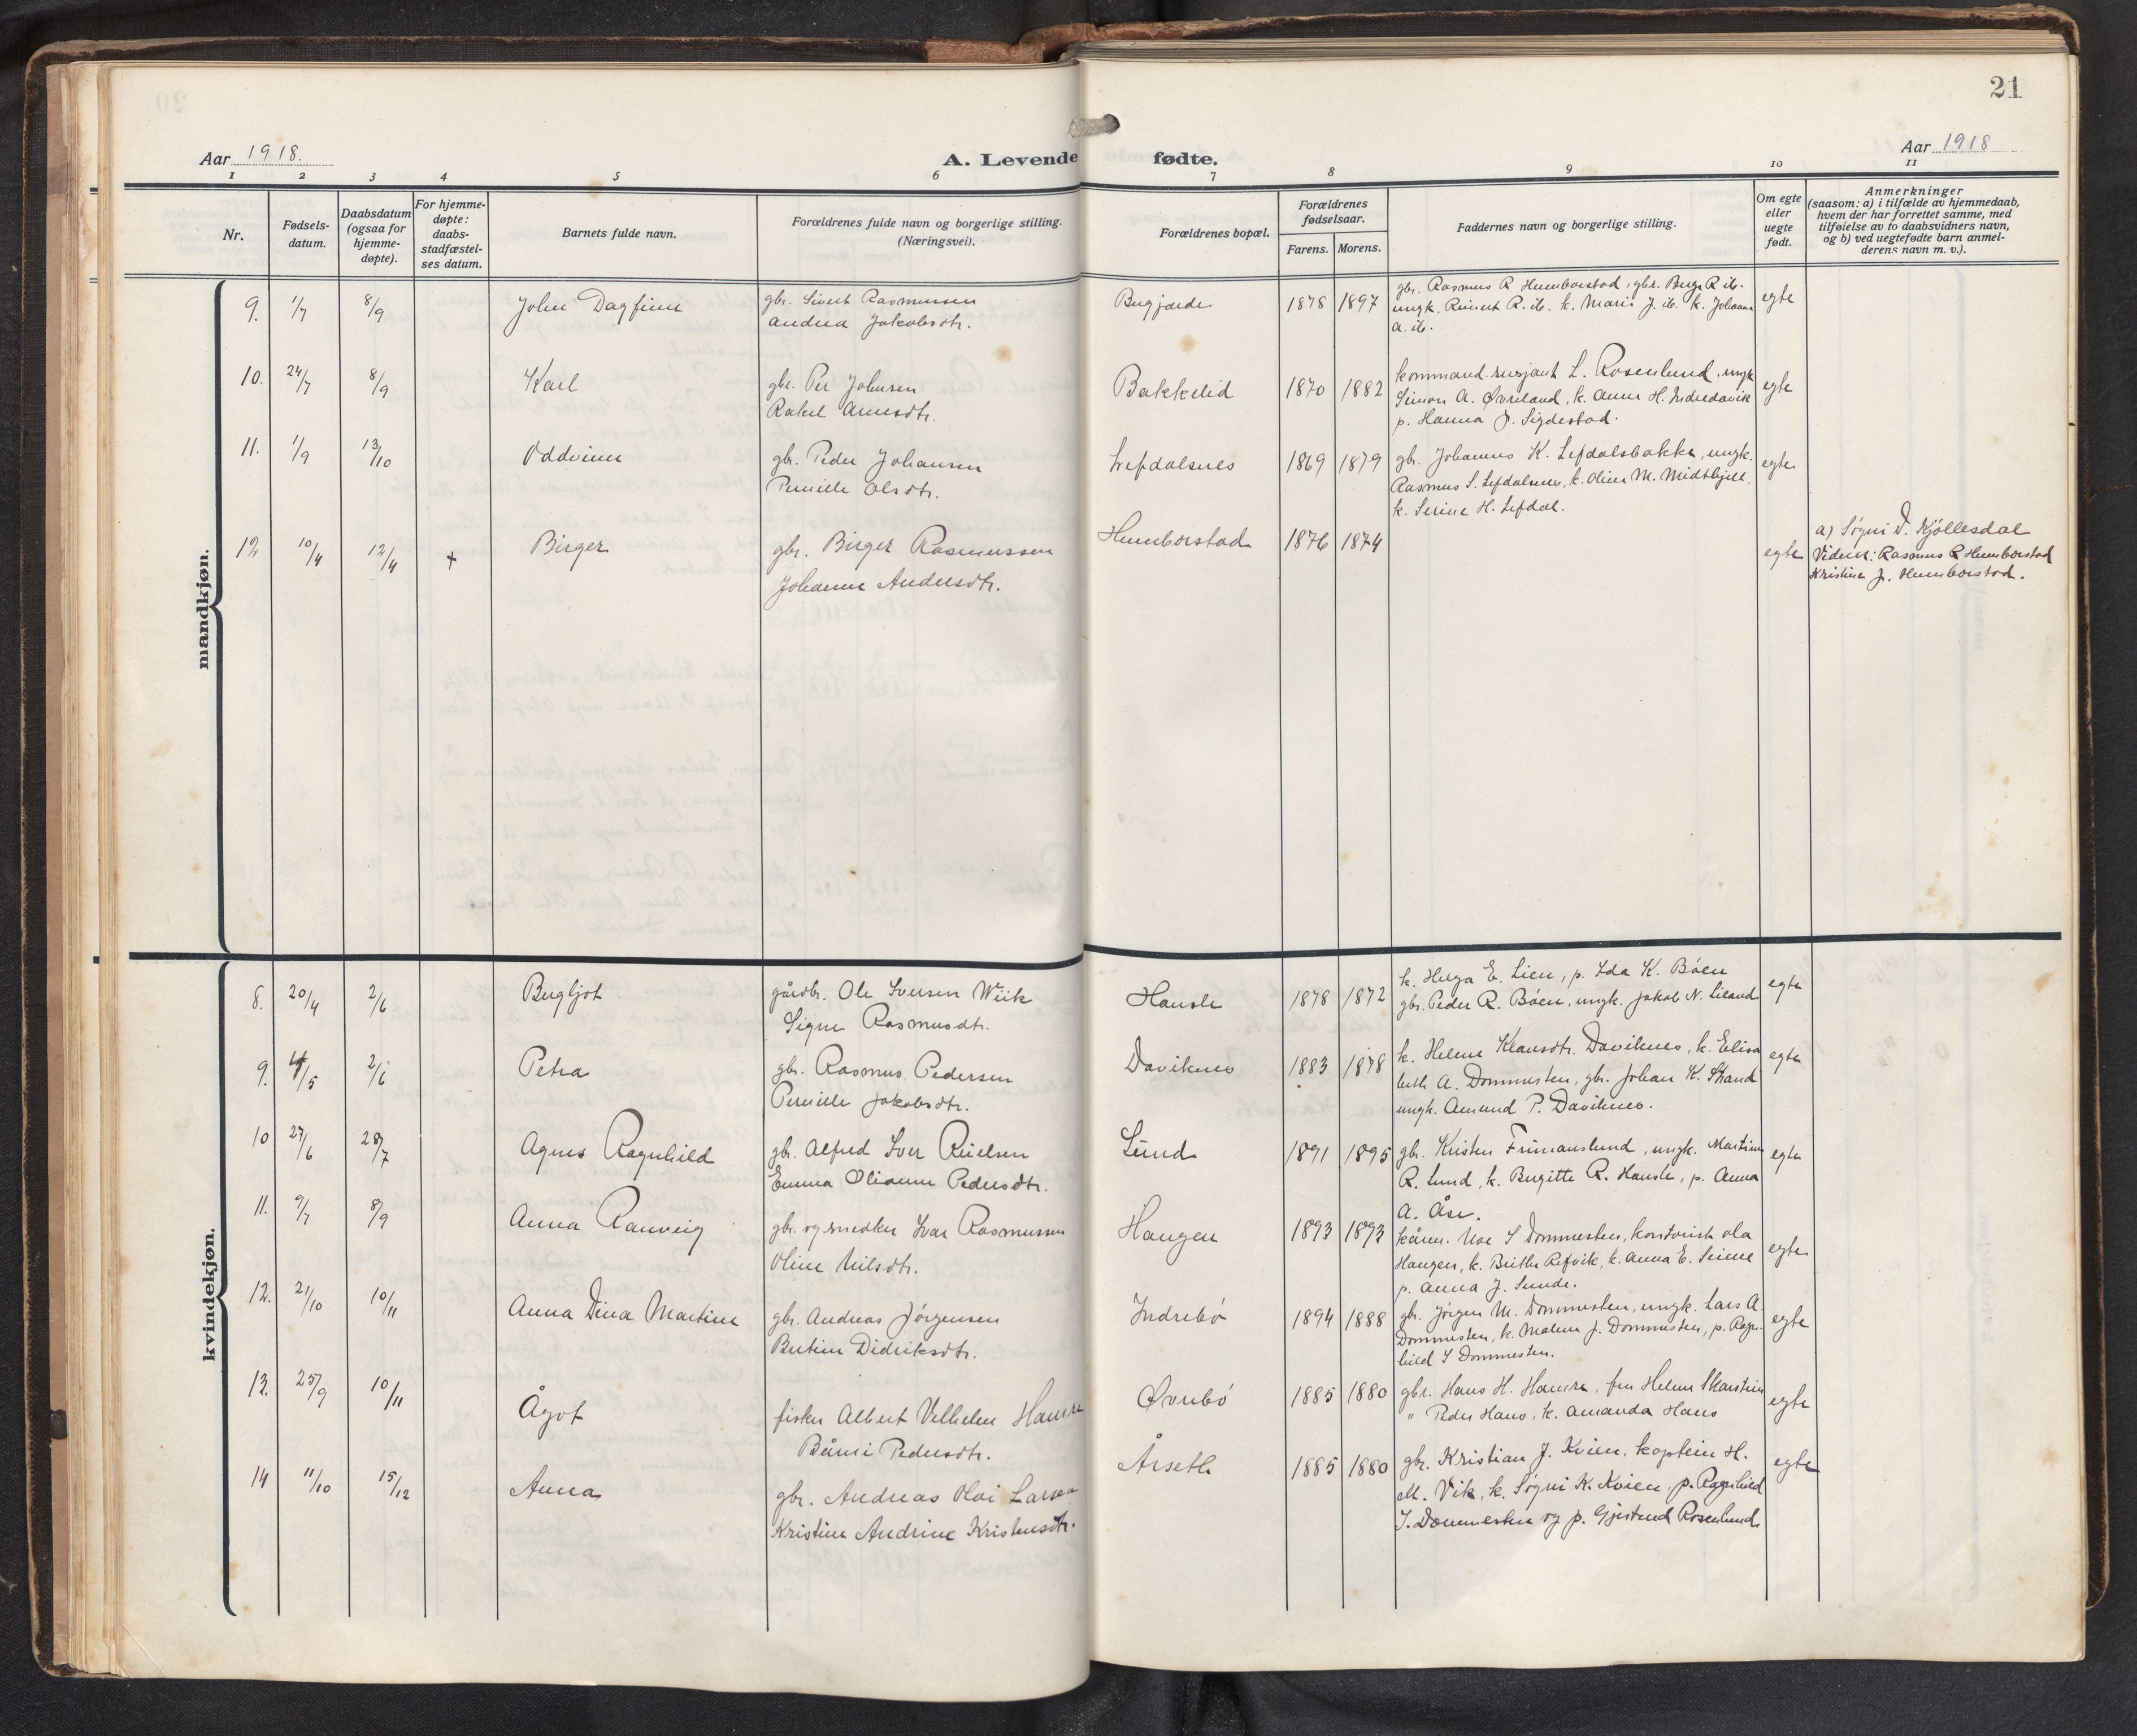 21
Aar 1918.
A. Levende fødte.
Aar 1918
1 2 3 4 5 6 7 8 9 10 11
Nr.
Fødsels-
datum.
Daabsdatum
(ogsaa for
hjemme-
døpte).
For hjemme-
døpte:
daabs-
stadfæstel-
ses datum.
Barnets fulde navn.
Forældrenes fulde navn og borgerlige stilling.
(Næringsvei).
Forældrenes bopæl.
Forældrenes
fødselsaar.
Farens. Morens.
Faddernes navn og borgerlige stilling.
Om egte
eller
uegte
født.
Anmerkninger
(saasom: a) i tilfælde av hjemmedaab,
hvem der har forrettet samme, med
tilføielse av to daabsvidners navn,
og b) ved uegtefødte barn anmel-
derens navn m. v.).
mandkjøn.
9. 1/7 8/9 John Dagfinn
gbr. Sivert Rasmussen
Andrea Jakobsdtr.
Bugjerde 1878 1897
gbr. Rasmus R Humborstad, gbr. Birger R ib.
ungk. Reinert R. ib. k. Marie J. ib. k. Johanne
A. ib.
egte
10. 24/7 8/9 Karl
gbr. Per Johnsen
Rakel Arnesdtr.
Bakkelid 1870 1882
kommand.sersjant L. Rosenlund, ungk
Simon A. Øvreland, k. Anne H. Indredavik
p. Hanna J. Sigdestad.
egte
11. 1/9 13/10 Oddvinn
gbr. Peder Johansen
Pernille Olsdtr.
Lefdalsnes 1869 1879
gbr. Johannes K. Lefdalsbakke, ungk.
Rasmus S. Lefdalsnes, k. Oline M. Midthjell,
k. Serine H. Lefdal.
egte
12 10/4 12/4 + Birger
gbr. Birger Rasmussen
Johanne Andersdtr.
Humborstad 1876 1874
egte
a) Søgni D. Kjøllesdal
Vidner: Rasmus R Humborstad
Kristine J. Humborstad.
kvindekjøn.
8. 20/4 2/6 Bergljot
gårdbr. Ole Iversen Wiik
Signe Rasmusdtr.
Hausle 1878 1872
k. Helga E. Lien, p. Ida K. Bøen
gbr. Peder R. Bøen, ungk. Jakob N. Liland
egte
9. 4/5 2/6 Petra
gbr. Rasmus Pedersen
Pernille Jakobsdtr.
Daviknes 1883 1878
k. Helene Klausdtr. Daviknes, k. Elisa
beth A. Dommesten, gbr. Johan K. Strand
ungk. Amund P. Daviknes.
egte
10 27/6 28/7 Agnes Ragnhild
gbr. Alfred Iver Rielsen
Emma Olianne Pedersdtr.
Lund 1891 1895
gbr. Kristen Frimanslund, ungk. Martinus
R. Lund, k. Birgitte R. Hausle, p. Anna
A. Åse.
egte
11. 9/7 8/9 Anna Ranveig
gbr. og snedker Ivar Rasmussen
Oline Nilsdtr.
Haugen 1893 1893
kårm. Noe S Dommesten, kontorist Ola
Haugen, k. Brithe Refvik, k. Anna E. Seime
p. Anna J. Sunde.
egte
12. 21/10 10/11 Anna Dina Martine
gbr. Andreas Jørgensen
Bertine Didriksdtr.
Indrebø 1894 1888
gbr. Jørgen M. Dommesten, ungk. Lars A.
Dommesten, k. Malene J. Dommesten, p. Ragn-
hild S Dommesten.
egte
13. 25/9 10/11 Ågot
fisker Albert Vilhelm Hamre
Pedersdtr.
Øvrebø 1885 1880
gbr. Hans H. Hamre, fru Helene Skarstein
" Peder Haus, k. Amanda Haus
egte
14 11/10 15/12 Anna
gbr. Andreas Olai Larsen
Kristine Andrine Kristensdtr.
Årseth 1885 1880
gbr. Kristian J. Kvien, kaptein H.
M. Vik, k. Søgni K. Kvien, p. Ragnhild
S. Dommesten og p. Gjertrud Rosenlund
egte